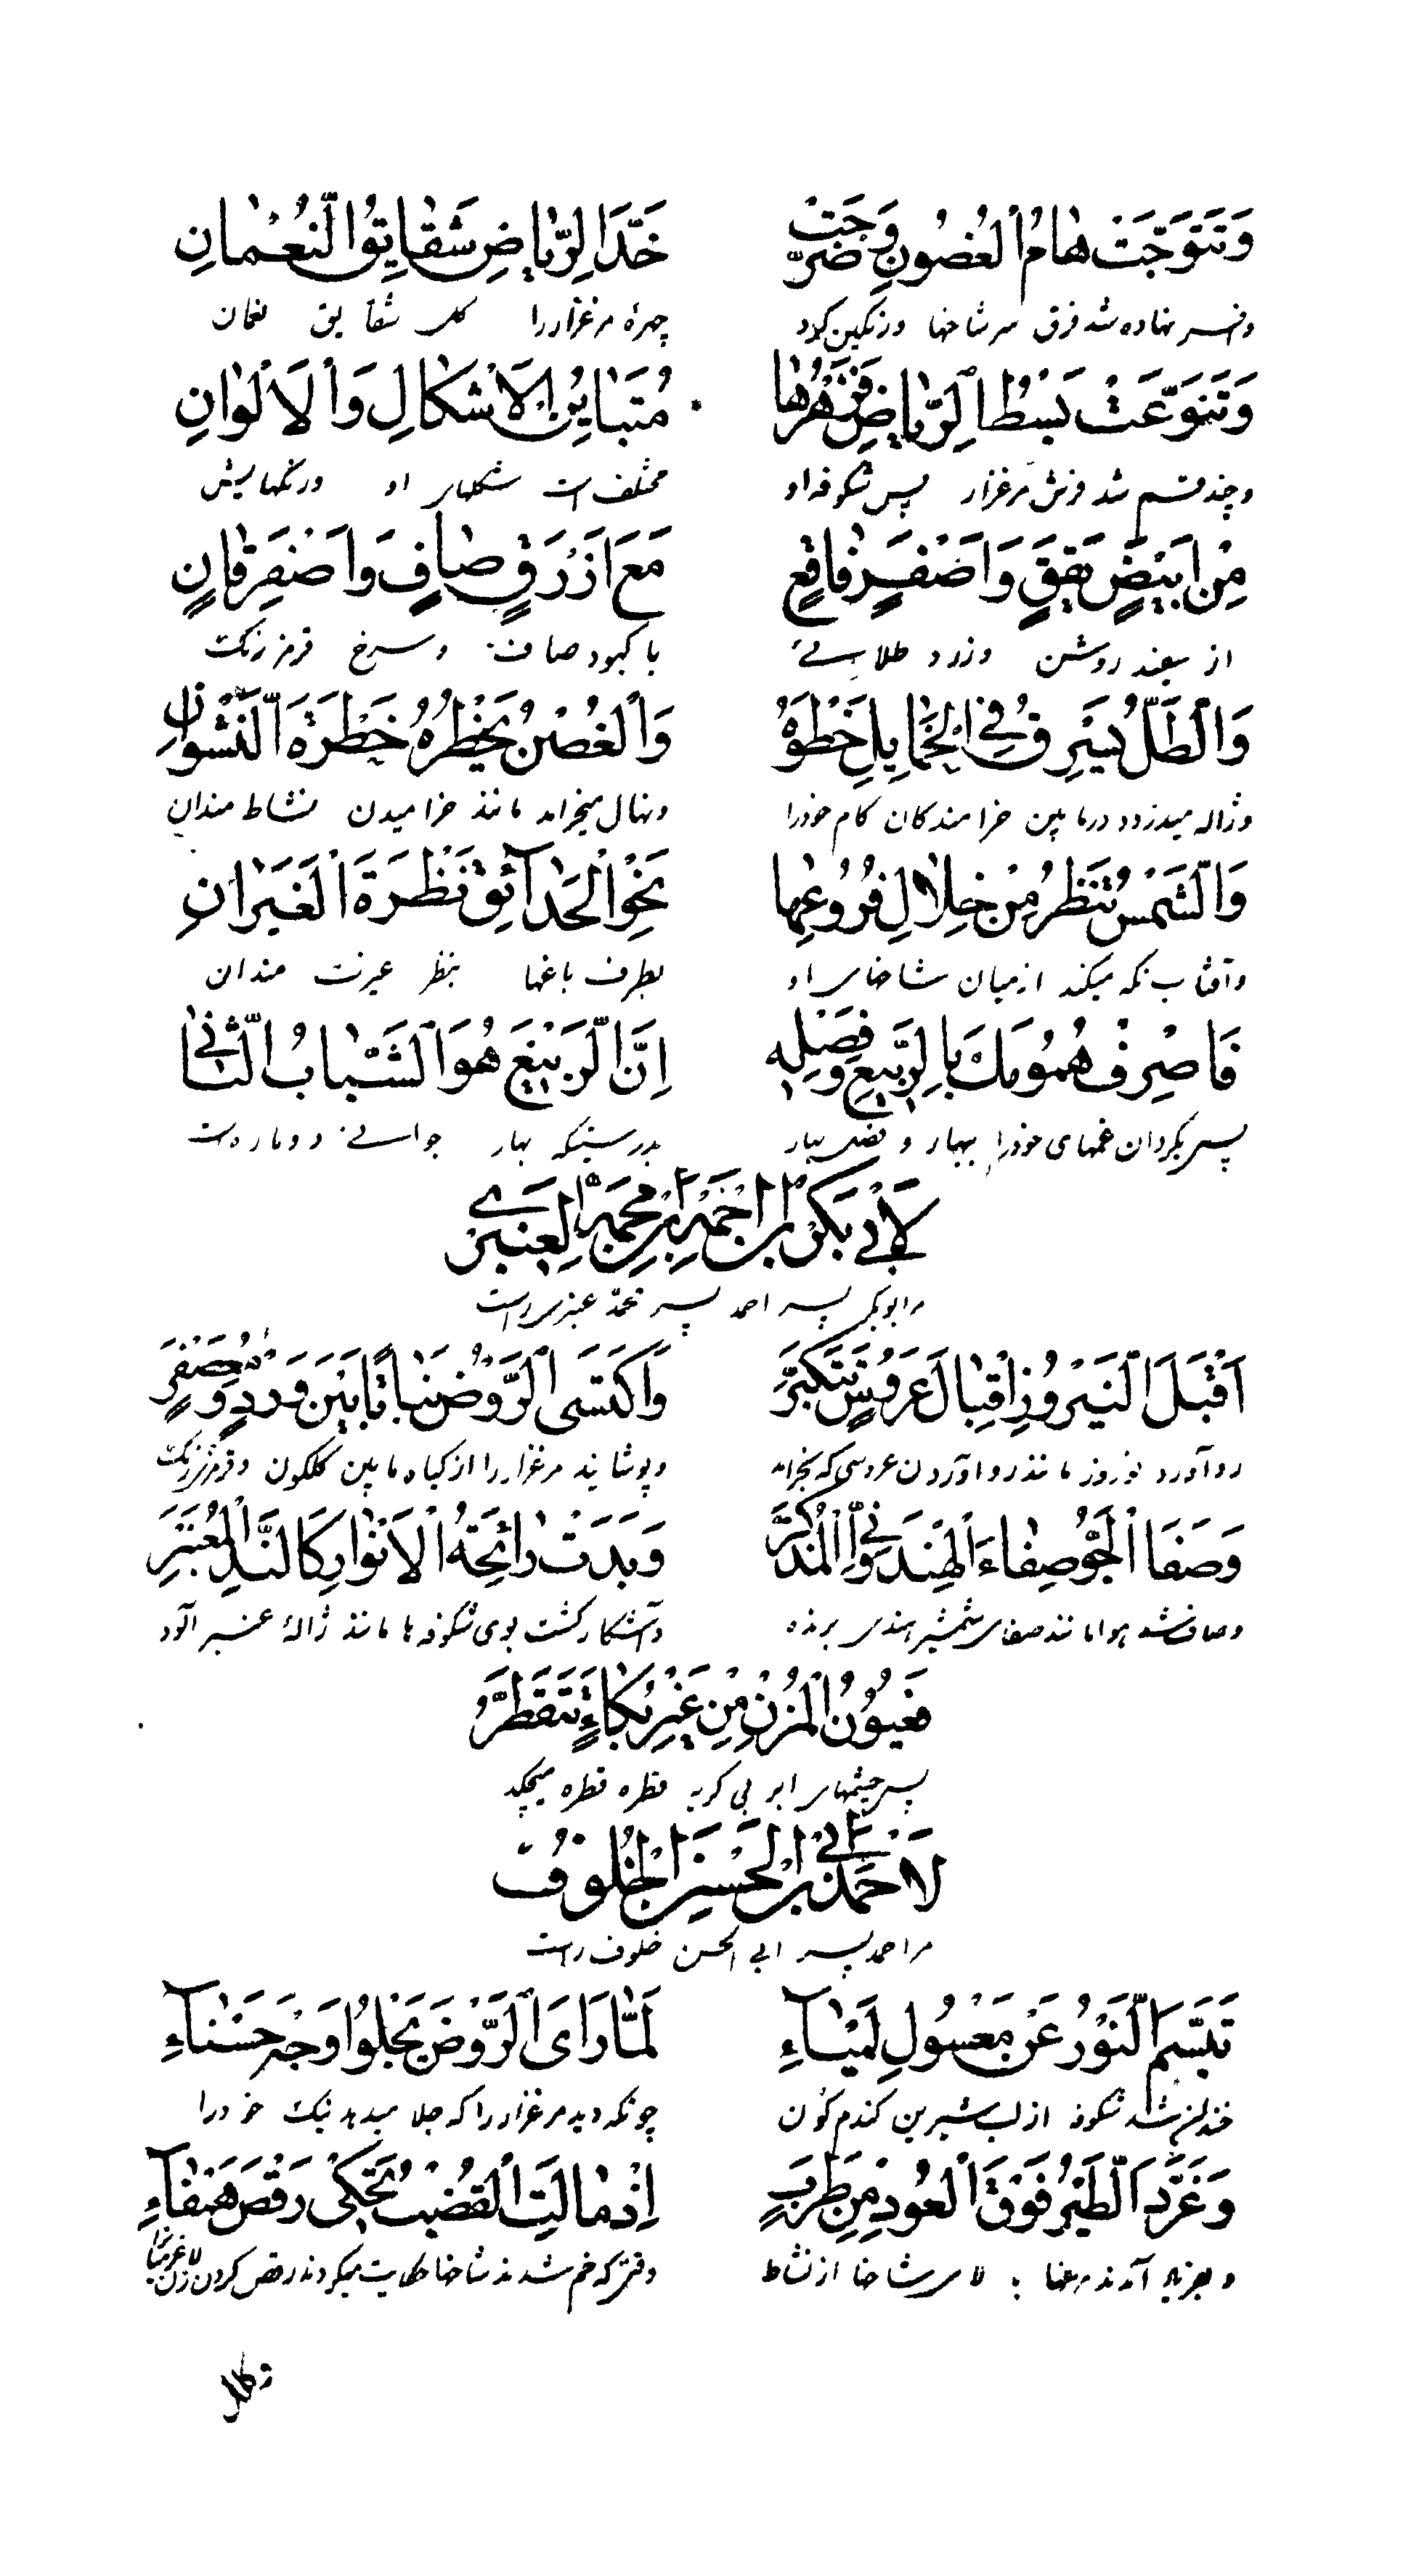 وَتَتَوَّجَتْ هَامُ الْغُصُونِ وَضَرَّجَتْ خَدَّ الرِّيَاضِ شَقَائِقُ النُّعْمَانِ
و افسر نهاده شد فرق سر شاخها ورنکین کرد چهرهٔ مرغزار را کل شقایق نعمان
وَتَنَوَّعَتْ بُسْطُ الرِّيَاضِ فَزَهْرُهَا مُتَبَايِنُ الْاَشْكَالِ وَالْاَلْوَانِ
و چند قسم شد فرش مرغزار پس شکوفه او مختلف است شکلهای او ورنکهایش
مِنْ اَبْيَضٍ يَقَقٍ وَاَصْفَرٍ فَاقِعٍ مَعَ اَزْرَقٍ صَافٍ وَاَصْفَرِ قَانٍ
از سفید روشن وزرد طلایی با کبود صاف و سرخ قرمز رنک
وَالطَّلُّ يَسْرِقُ فِي الْخَمَايِلِ خَطْوَهُ وَالْغُصْنُ يَخْطُرُ خَطْرَةَ النَّشْوَانِ
و ژاله میدزدد در مابین خرامندکان کام خودرا ونهال میخرامد مانند خرامیدن نشاط مندان
وَالشَّمْسُ تَنْظُرُ مِنْ خِلَالِ فُرُوعِهَا نَحْوَ الْحَدَآئِقِ نَظْرَةَ الْغَيْرَانِ
و آفتاب نکه میکند از میان شاخهای او بطرف باغها بنظر غیرت مندان
فَاصْرِفْ هُمُومَكَ بِالرَّبِيعِ وَفَصْلِهِ اِنَّ الرَّبِيعَ هُوَ الشَّبَابُ الثَّانِي
پس بکردان غمهای خودرا ببهار و فصل بهار بدرستیکه بهار جوانی دوباره است
لِاَبِي بَكْرِ ابْنِ اَحْمَدَ ابْنِ مُحَمَّدٍ الْعَنْبَرِي
مر ابوبکر پسر احمد پسر محمّد عنبری راست
اَقْبَلَ النَّيْرُوزُ اِقْبَالَ عَرُوسٍ تَتَكَبَّرُ وَاكْتَسَى الرَّوْضُ نَبَاتًا بَيْنَ وَرْدٍ وَمُعَصْفَرٍ
رو آورد نوروز مانند رو اوردن عروسی که بخرامد وپوشانید مرغزار را از کیاه مابین کلکون و قرمز رنک
وَصَفَا الْجَوُّ صِفَاءَ الْهِنْدُوَانِيِّ الْمُذَكَّرِ وَبَدَتْ رَائِحَةُ الْاَنْوَارِ كَالنَّدِّ الْمُعَنْبَرِ
وصاف شد هوا مانند صفای شمشیر هندی برنده و آشکار کشت بوی شکوفه ها مانند ژالهٔ عنبر آلود
فَعُيُونُ الْمُزْنِ مِنْ غَيْرِ بُكَاءٍ تَتَقَطَّرُ
پس چشمهای ابر بی کریه قطره قطره میچکد
لِاَحْمَدَ بْنِ اَبِي الْحَسَنِ الْخَلُوفِ
مر احمد پسر ابی الحسن خلوف راست
تَبَسَّمَ النَّوْرُ عَنْ مَعْسُولِ لَمْيَآءِ لَمَّا رَاَى الرَّوْضَ يَجْلُوا وَجْهَ حَسْنَآءِ
خندان شد شکوفه از لب شیرین کندم کون چونکه دید مرغزار را که جلا میدهد نیک خودرا
وَغَرَّدَ الطَّيْرُ فَوْقَ الْعُودِ مِنْ طَرَبٍ اِذْ مَالَتِ الْقُضْبُ تَحْكِي رَقْصَ هَيْفَآءِ
آمدند مرغها بالای شاخها از نشاط وقتی که خم شدند شاخها حکایت میکردند رقص کردن زن